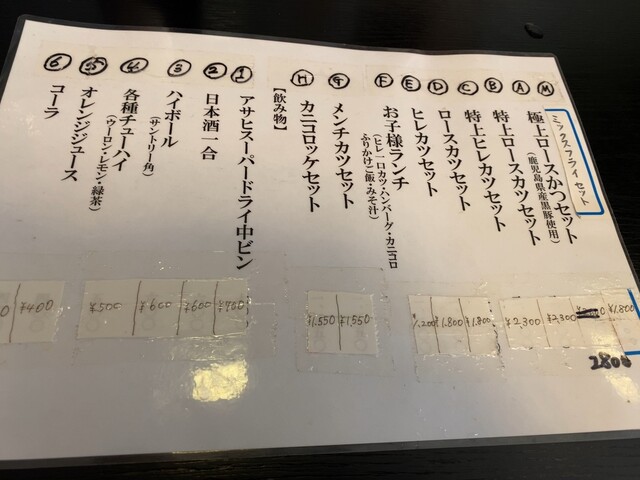 Ⓜ ミックスフライセット ¥1,800
Ⓐ 極上ロースかつセット
(鹿児島県産黒豚使用)
2800
Ⓑ 特上ロースカツセット ¥2,300
Ⓒ 特上ヒレカツセット ¥2,300
Ⓓ ロースカツセット ¥1,800
Ⓔ ヒレカツセット ¥1,800
Ⓕ お子様ランチ 1,200
(ヒレ一口カツ・ハンバーグ・カニコロ
ふりかけご飯・みそ汁)
Ⓖ メンチカツセット ¥1,550
Ⓗ カニコロッケセット ¥1,550
【飲み物】
① アサヒスーパードライ中ビン ¥700
② 日本酒一合 ¥600
③ ハイボール ¥600
(サントリー角)
④ 各種チューハイ ¥500
(ウーロン・レモン・緑茶)
⑤ オレンジジュース ¥400
⑥ コーラ